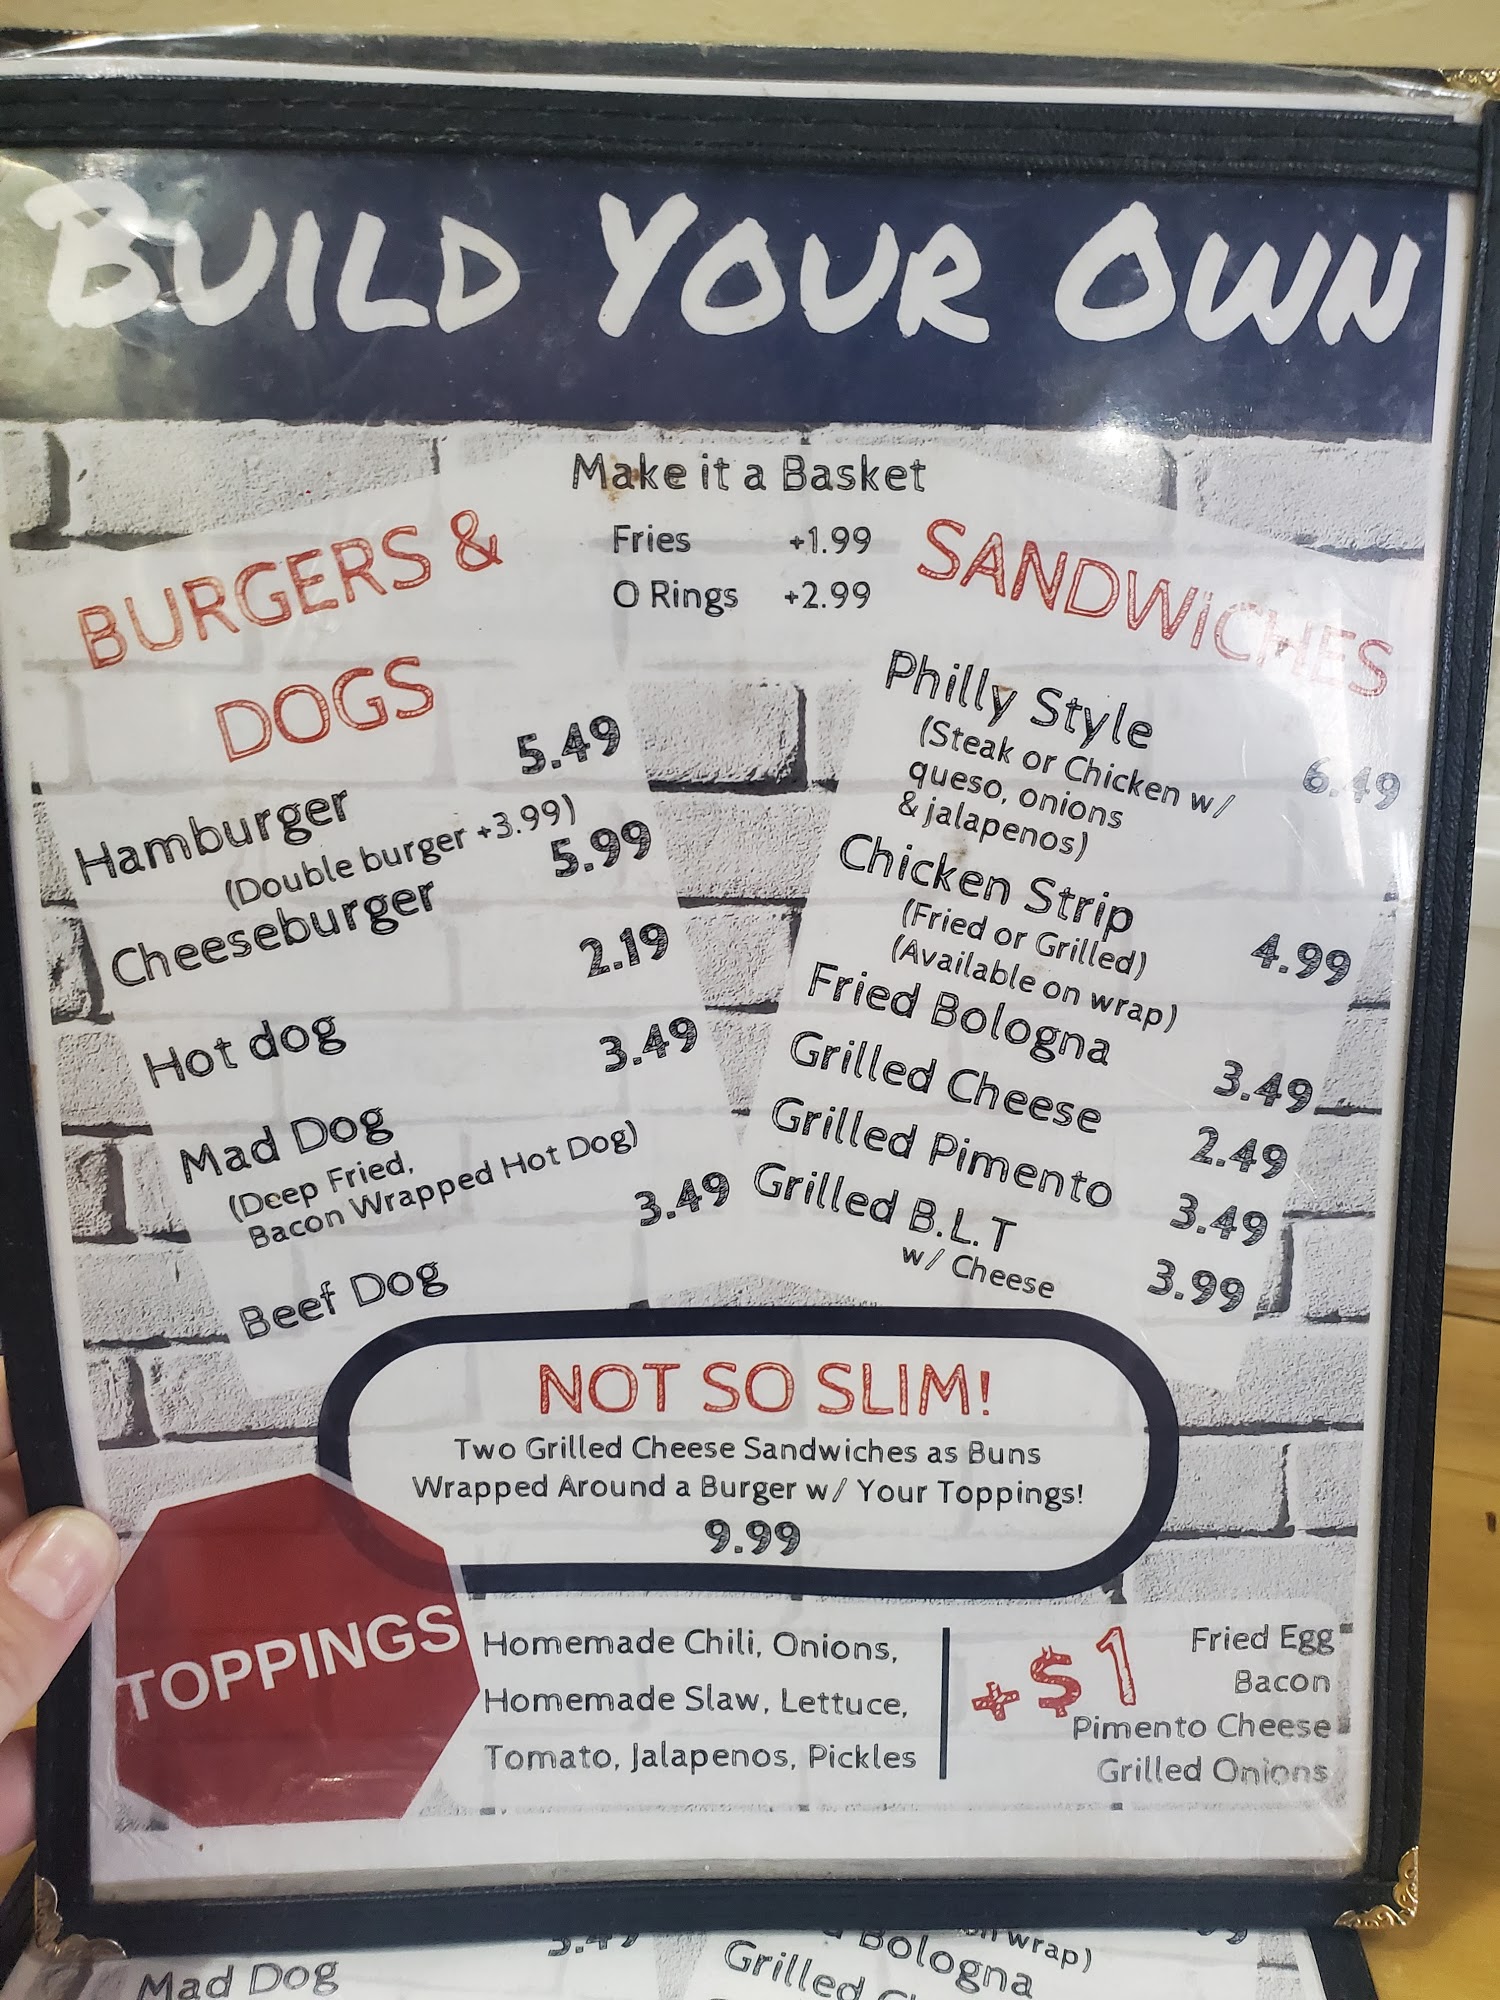 BUILD YOUR OWN
Make it a Basket
Fries +1.99
O Rings +2.99
BURGERS &
DOGS
Hamburger 5.49
(Double burger +3.99)
Cheeseburger 5.99
Hot dog 2.19
Mad Dog 3.49
(Deep Fried,
Bacon Wrapped Hot Dog)
Beef Dog 3.49
SANDWiCHES
Philly Style
(Steak or Chicken w/ 6.49
queso, onions
& jalapenos)
Chicken Strip
(Fried or Grilled) 4.99
(Available on wrap)
Fried Bologna 3.49
Grilled Cheese 2.49
Grilled Pimento 3.49
Grilled B.L.T 3.99
w/ Cheese
NOT SO SLIM!
Two Grilled Cheese Sandwiches as Buns
Wrapped Around a Burger w/ Your Toppings!
9.99
TOPPINGS
Homemade Chili, Onions,
Homemade Slaw, Lettuce,
Tomato, Jalapenos, Pickles
+$1
Fried Egg
Bacon
Pimento Cheese
Grilled Onions
3.49
Mad Dog
on wrap)
Bologna
Grilled